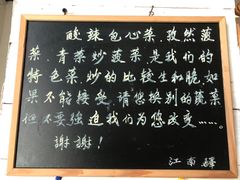 酸辣包心菜、孜然蔬
菜、青菜炒蔬菜是我们的
特色菜炒的比较生和脆如
果不能接受请您换别的蔬菜
但不要强迫我们为您改变……。
謝謝！
江南驛